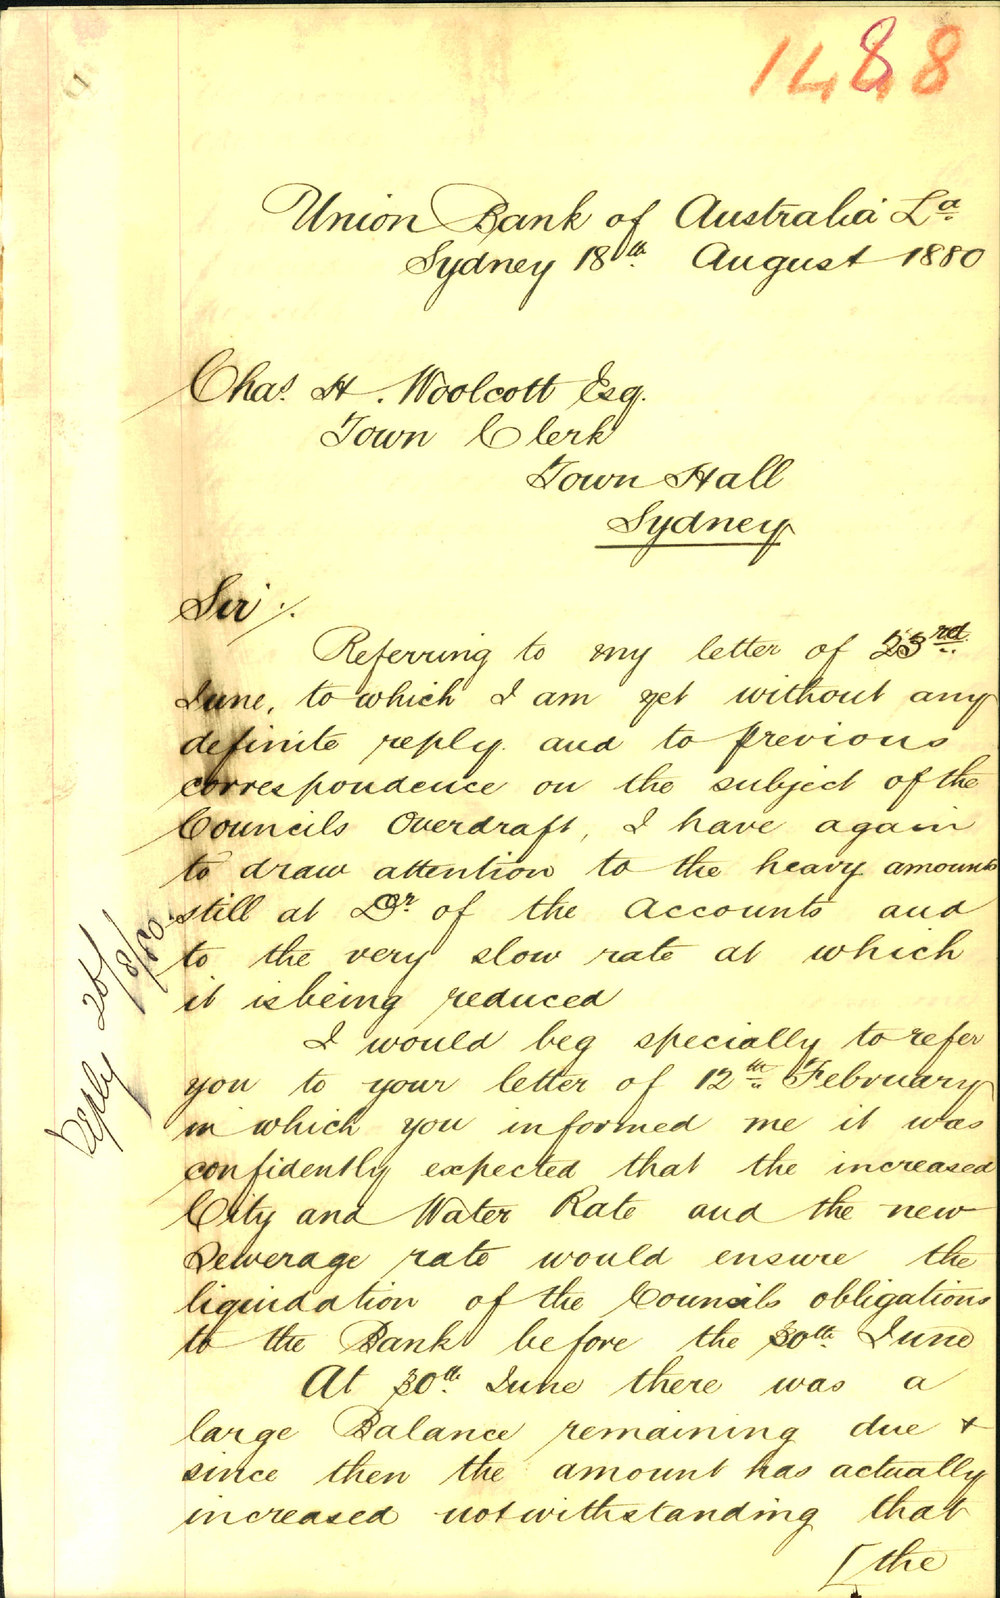 1488
Union Bank of Australia La
Sydney 18th August 1880
Chas. H. Woolcott Esq.
Town Clerk
Town Hall
Sydney
Sir/.
Referring to my letter of 23rd
June, to which I am yet without any
definite reply. and to previous
correspondence on the subject of the
Councils Overdraft, I have again
to draw attention to the heavy amounts
still at Dr. of the Accounts and
to the very slow rate at which
it is being reduced
I would beg specially to refer
you to your letter of 12th February
in which you informed me it was
confidently expected that the increased
City and Water Rate and the new
Sewerage rate would ensure the
liquidation of the Councils obligations
to the Bank before the 30th June
At 30th June there was a
large Balance remaining due +
since then the amount has actually
increased notwithstanding that
[the
Reply 20/8/80.